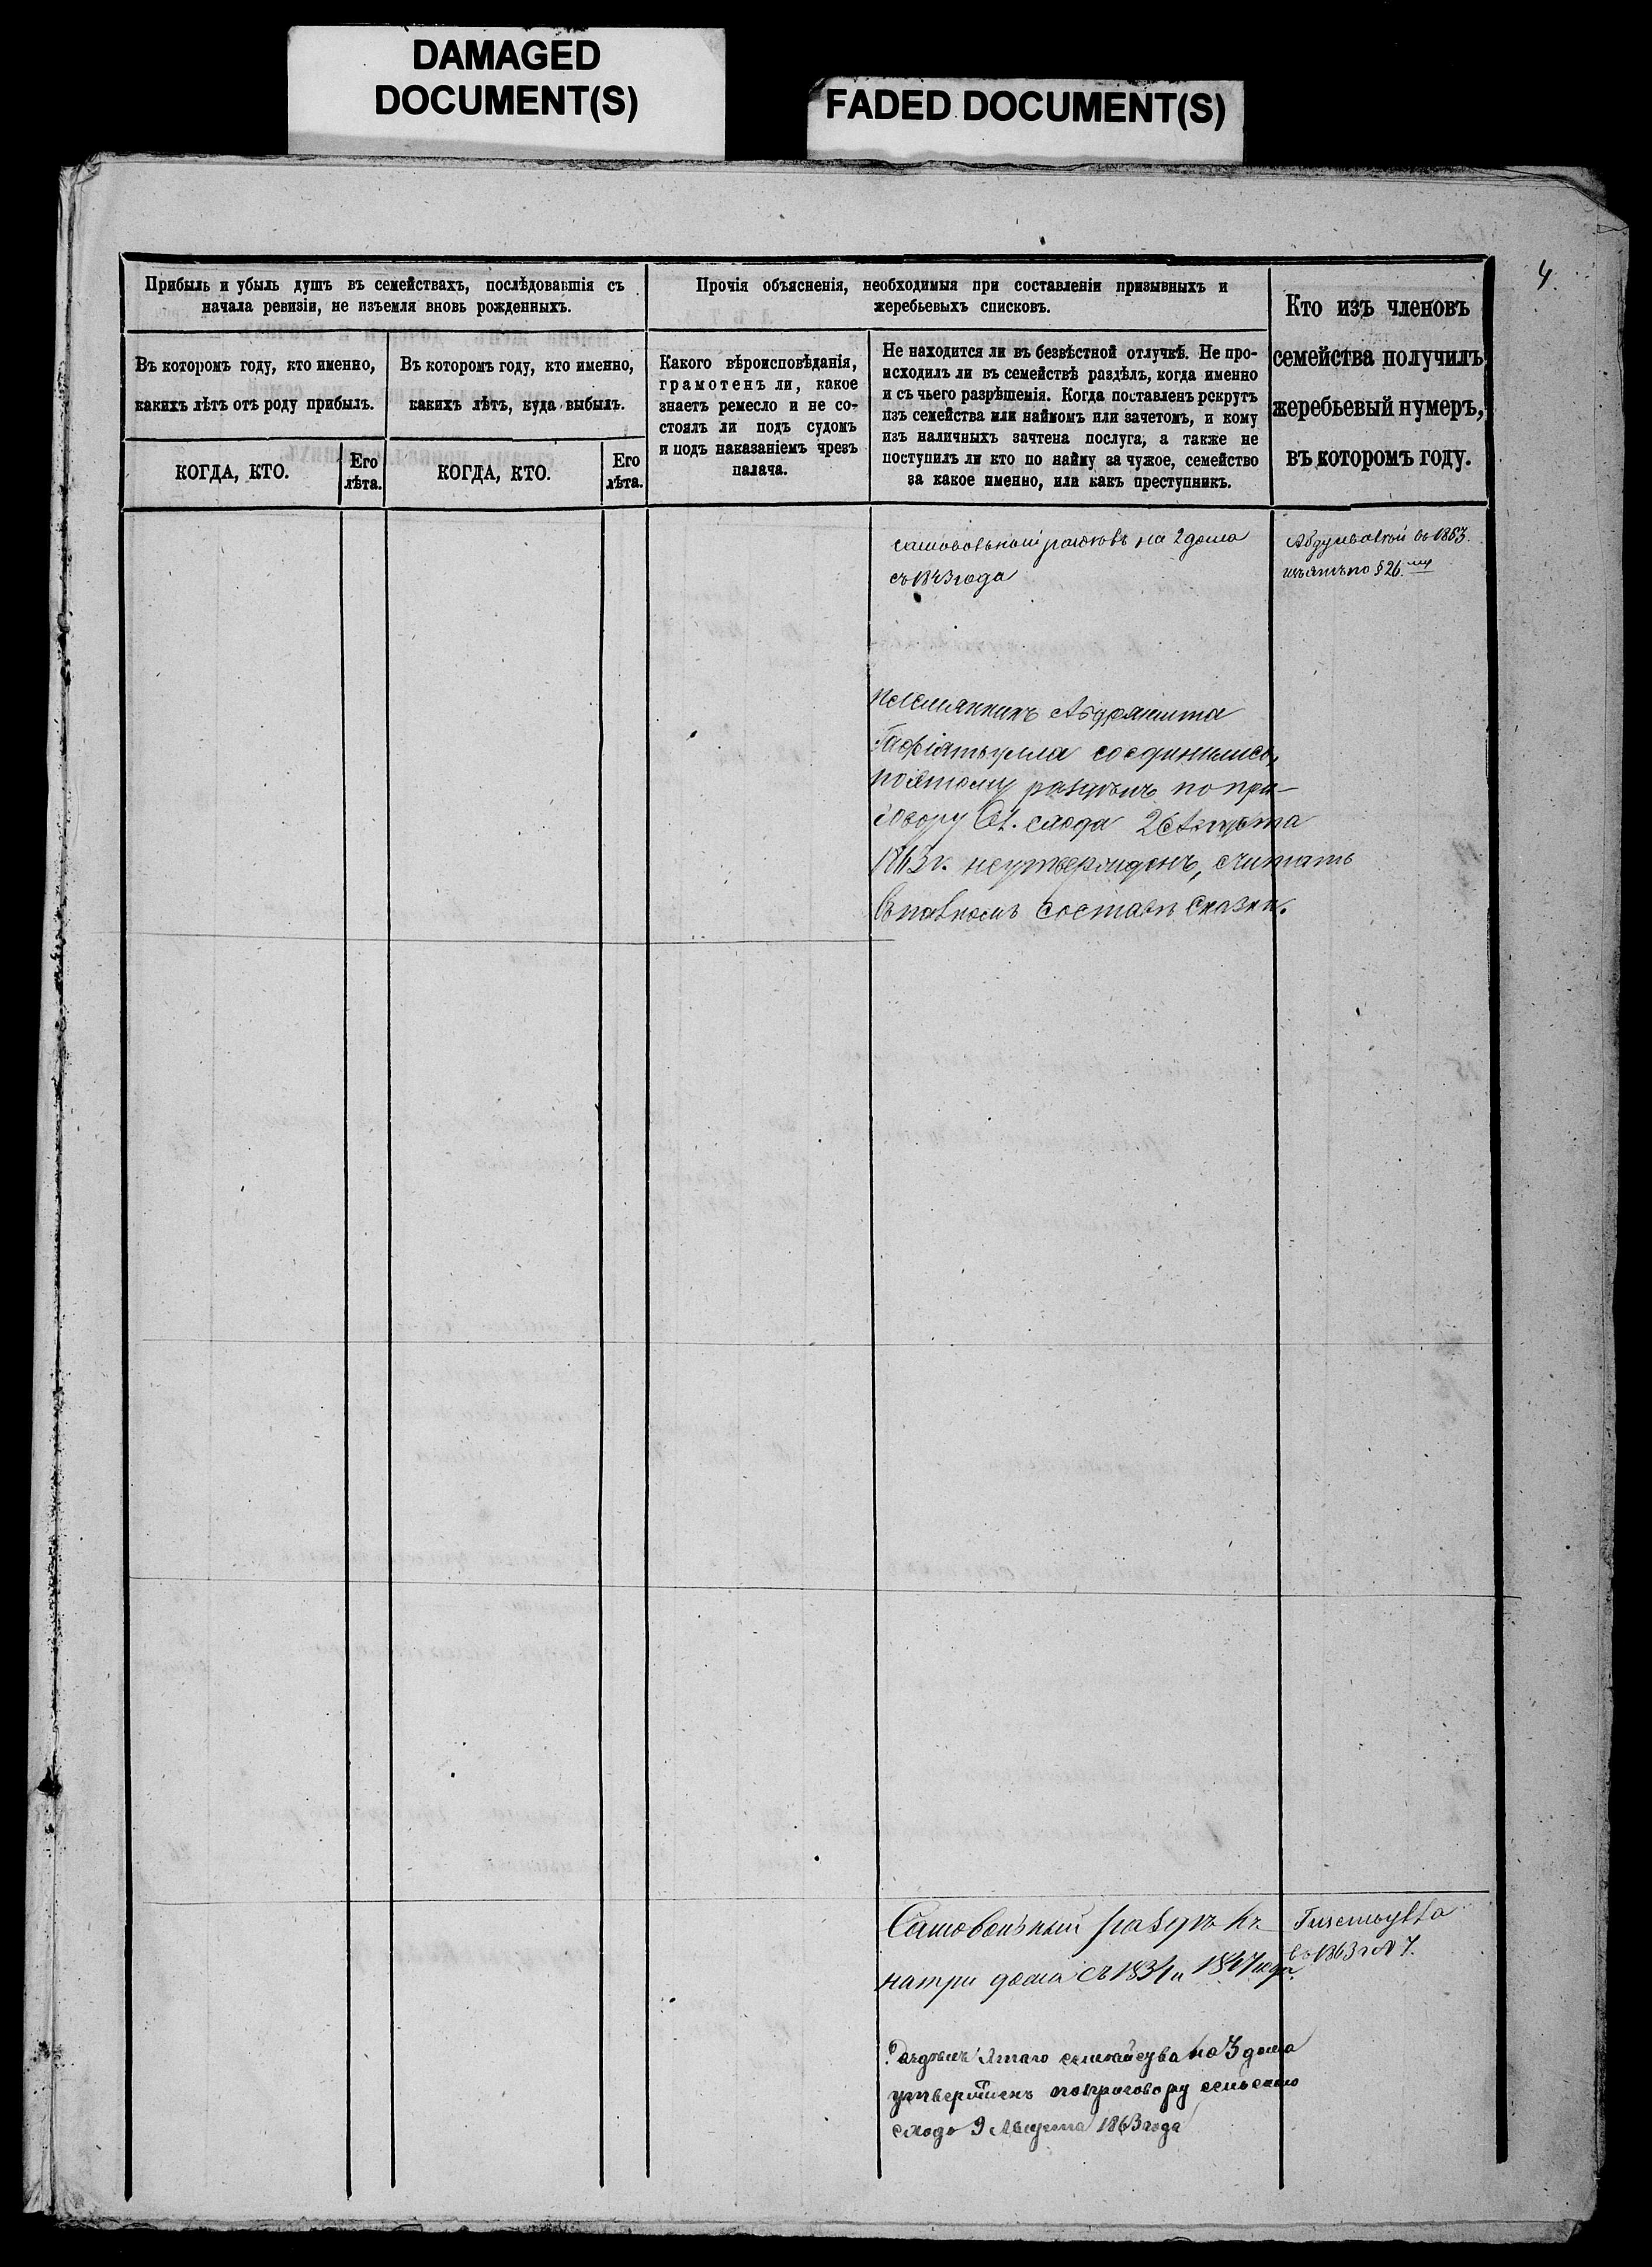 DAMAGED
DOCUMENT(S)
FADED DOCUMENT(S)
4.
Прибыль и убыль душъ въ семействахъ, послѣдовавшія съ
начала ревизіи, не изъемля вновь рожденныхъ.
Въ которомъ году, кто именно,
какихъ лѣтъ отъ роду прибылъ.
КОГДА, КТО.
Его
лѣта.
Въ которомъ году, кто именно,
какихъ лѣтъ, куда выбылъ.
КОГДА, КТО.
Его
лѣта.
Прочія объясненія, необходимыя при составленіи призывныхъ и
жеребьевыхъ списковъ.
Какого вѣроисповѣданія,
грамотенъ ли, какое
знаетъ ремесло и не со-
стоялъ ли подъ судомъ
и подъ наказаніемъ чрезъ
палача.
Не находится ли въ безвѣстной отлучкѣ. Не про-
исходилъ ли въ семействѣ раздѣлъ, когда именно
и съ чьего разрѣшенія. Когда поставленъ рекрутъ
изъ семейства или наймомъ или зачетомъ, и кому
изъ наличныхъ зачтена послуга, а также не
поступилъ ли кто по найму за чужое, семейство
за какое именно, или какъ преступникъ.
Кто изъ членовъ
семейства получилъ
жеребьевый нумеръ,
въ которомъ году.
на 2 дома
съ 1843 года
въ 1863.
по § 26.
племянникъ
соединились,
поэтому раздѣлъ по при-
говору схода 26 Августа
1863 г. неутвержденъ, считать
составѣ сказки.
Самовольный
на три дома съ 1834 и 1847 года.
въ 1863 г № 7.
Раздѣлъ этаго семейства на 3 дома
утвержденъ по приговору сельскаго
схода 9 Августа 1863 года